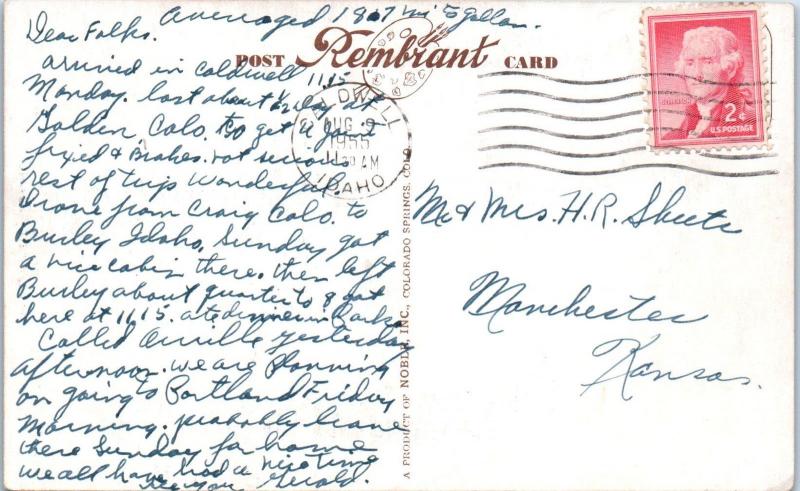 averaged 18.7 mi 5 gallon.
Dear Folks.
POST Rembrant CARD
arrived in Caldwell 11,15
Monday. lost about 1/2 day at
Golden, Colo. to get U Joint
fixied & Brakes. not serious
rest of trip Wonderful.
Drove from Craig Colo. to
Burley Idaho. Sunday got
a nice cabin there. then left
Burley about quarter to 8 got
here at 11,15. ate dinner in Park.
Called Orville yesterday
afternoon. we are planning
on going to Portland Friday
morning. probably leave
there Sunday for home
we all have had a nice time
see you Gerald.
CALDWELL
AUG 9
1955
11 30 AM
IDAHO
JEFFERSON
2¢
U.S. POSTAGE
Mr & Mrs. H. R. Sheets
Manchester
Kansas.
A PRODUCT OF NOBLE, INC., COLORADO SPRINGS, COLO.